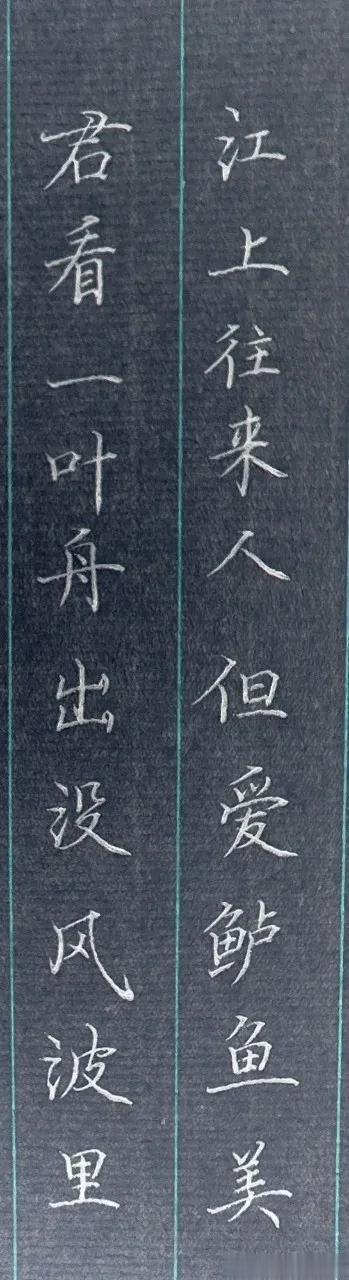 江上往来人但爱鲈鱼美
君看一叶舟出没风波里